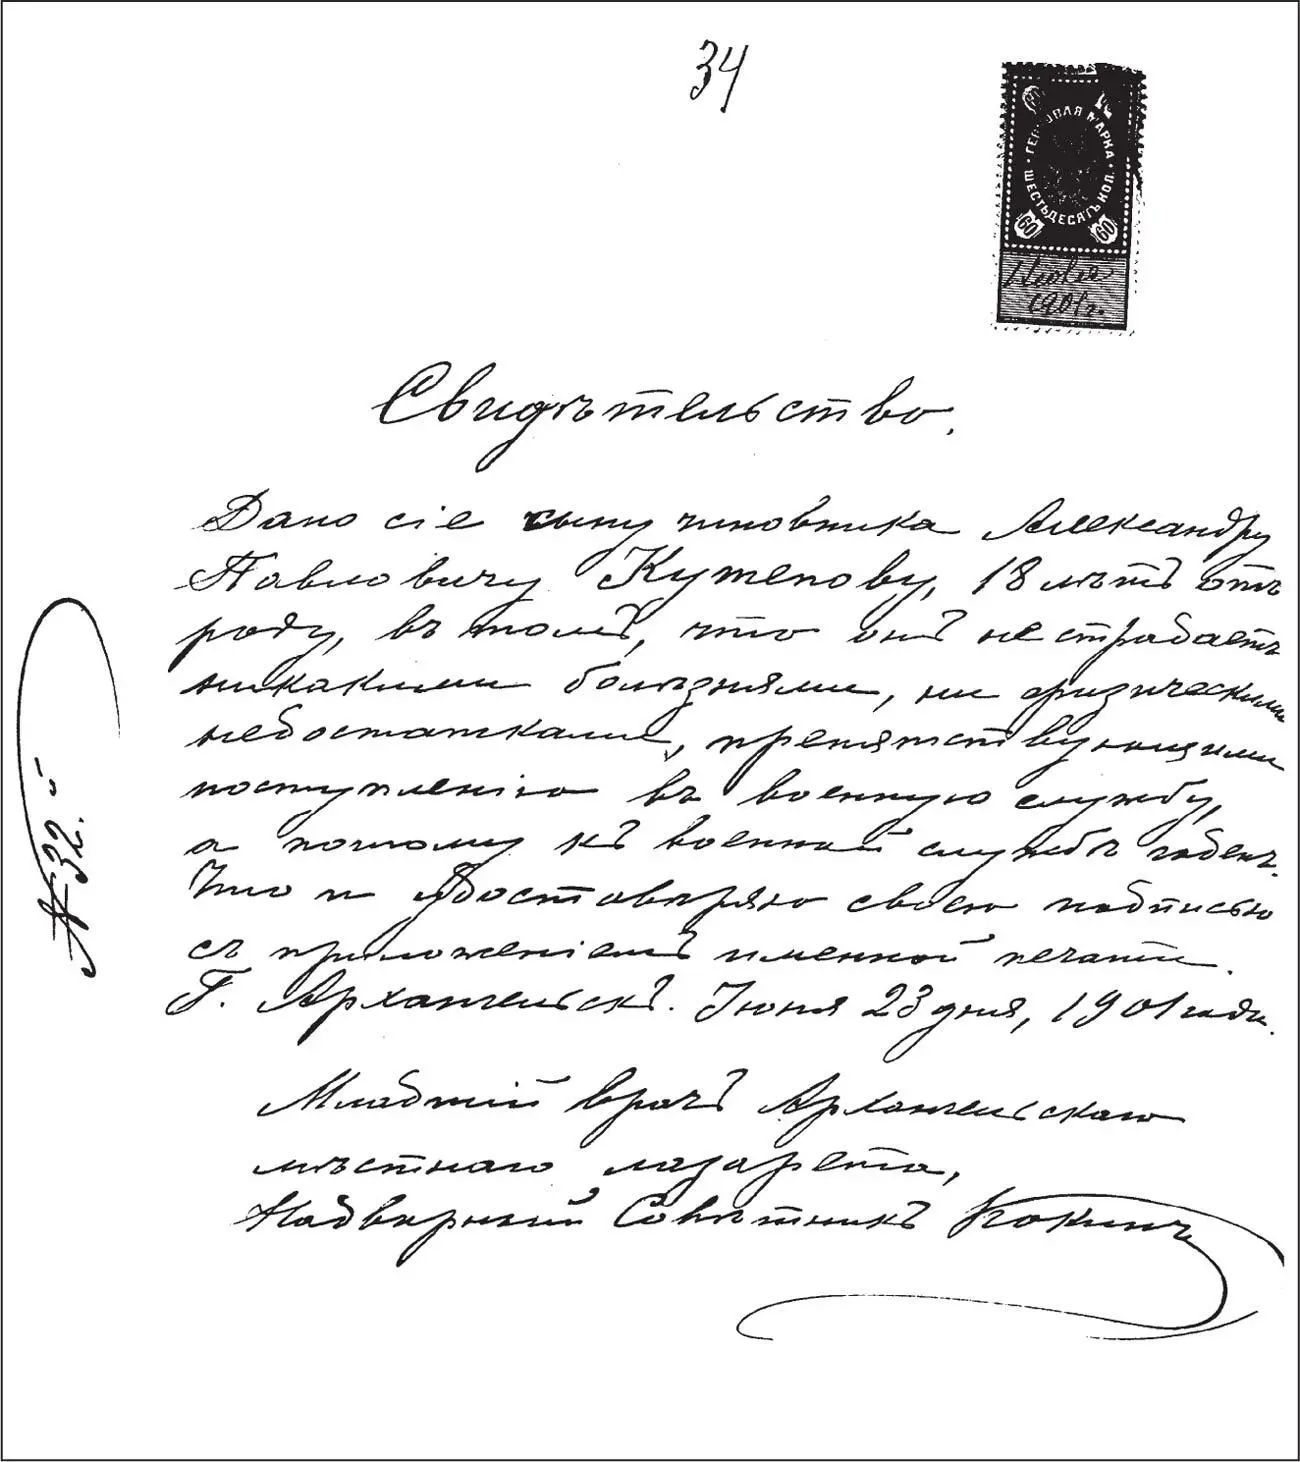 34
ГЕРБОВАЯ МАРКА
ШЕСТЬДЕСЯТЪ КОП.
60 60
1901 г.
Свидѣтельство.
Дано сіе сыну чиновника Александру
Павловичу Кутепову, 18 лѣтъ отъ
роду, въ томъ, что онъ не страдаетъ
никакими болѣзнями, ни физическими
недостатками, препятствующими
поступленію въ военную службу,
а потому къ военной службѣ годенъ.
Что и удостовѣряю своею подписью
съ приложеніемъ именной печати.
Г. Архангельскъ. Іюня 23 дня, 1901 года.
№ 32.
Младшій врачъ Архангельскаго
мѣстнаго лазарета,
Надворный Совѣтникъ